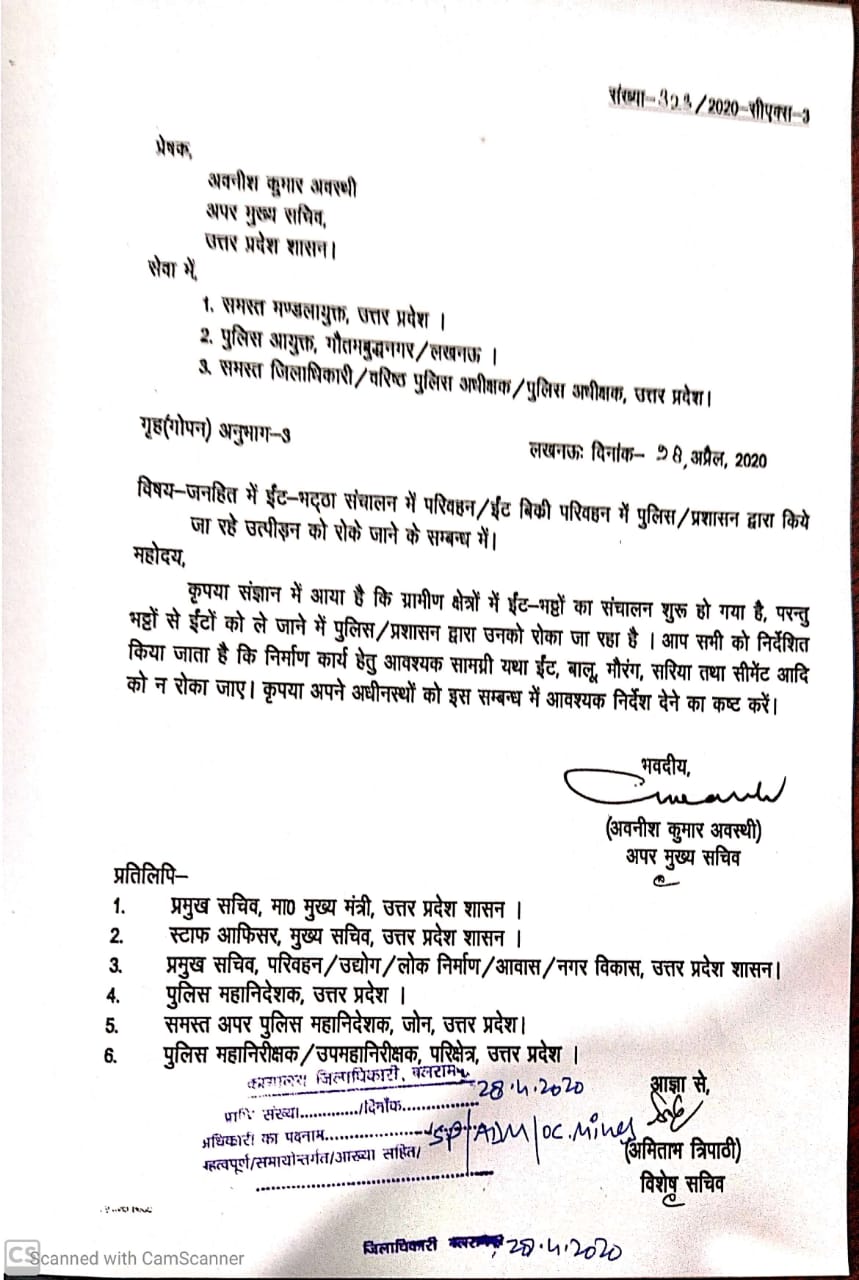 संख्या-323/2020-सीएक्स-3
प्रेषक,
अवनीश कुमार अवस्थी
अपर मुख्य सचिव,
उत्तर प्रदेश शासन।
सेवा में,
1. समस्त मण्डलायुक्त, उत्तर प्रदेश ।
2. पुलिस आयुक्त, गौतमबुद्धनगर/लखनऊ ।
3. समस्त जिलाधिकारी/वरिष्ठ पुलिस अधीक्षक/पुलिस अधीक्षक, उत्तर प्रदेश।
गृह(गोपन) अनुभाग-3
लखनऊः दिनांक- 28, अप्रैल, 2020
विषय-जनहित में ईंट-भट्ठा संचालन में परिवहन/ईंट बिकी परिवहन में पुलिस/प्रशासन द्वारा किये
जा रहे उत्पीड़न को रोके जाने के सम्बन्ध में।
महोदय,
कृपया संज्ञान में आया है कि ग्रामीण क्षेत्रों में ईंट-भट्ठों का संचालन शुरू हो गया है, परन्तु
भट्ठों से ईंटों को ले जाने में पुलिस/प्रशासन द्वारा उनको रोका जा रहा है । आप सभी को निर्देशित
किया जाता है कि निर्माण कार्य हेतु आवश्यक सामग्री यथा ईंट, बालू, मौरंग, सरिया तथा सीमेंट आदि
को न रोका जाए। कृपया अपने अधीनस्थों को इस सम्बन्ध में आवश्यक निर्देश देने का कष्ट करें।
भवदीय,
(अवनीश कुमार अवस्थी)
अपर मुख्य सचिव
प्रतिलिपि-
1. प्रमुख सचिव, मा0 मुख्य मंत्री, उत्तर प्रदेश शासन ।
2. स्टाफ आफिसर, मुख्य सचिव, उत्तर प्रदेश शासन ।
3. प्रमुख सचिव, परिवहन/उद्योग/लोक निर्माण/आवास/नगर विकास, उत्तर प्रदेश शासन।
4. पुलिस महानिदेशक, उत्तर प्रदेश ।
5. समस्त अपर पुलिस महानिदेशक, जोन, उत्तर प्रदेश।
6. पुलिस महानिरीक्षक/उपमहानिरीक्षक, परिक्षेत्र, उत्तर प्रदेश ।
कार्यालय जिलाधिकारी, बलरामपुर
प्राप्ति संख्या............/दिनाँक............... 28.4.2020
अधिकारी का पदनाम.................. SP/ADM/OC.Mines
महत्वपूर्ण/समायोन्तर्गत/आख्या सहित/
आज्ञा से,
(अमिताभ त्रिपाठी)
विशेष सचिव
जिलाधिकारी बलरामपुर 28.4.2020
CS Scanned with CamScanner